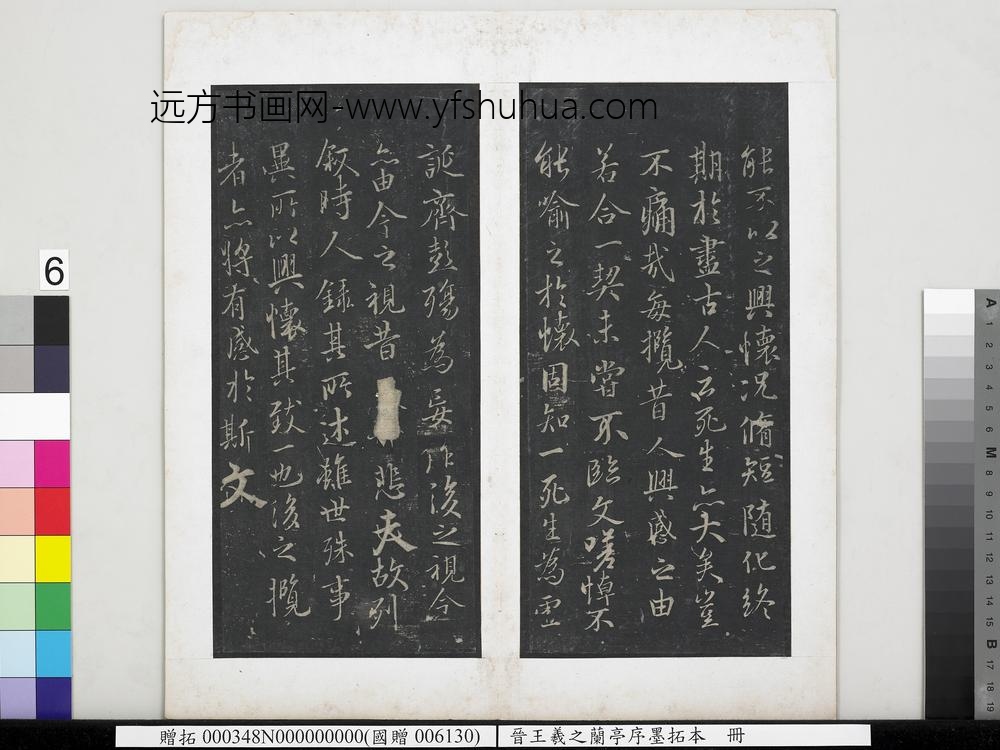 远方书画网-www.yfshuhua.com
能不以之興懷況脩短隨化終
期於盡古人云死生亦大矣豈
不痛哉每攬昔人興感之由
若合一契未嘗不臨文嗟悼不
能喻之於懷固知一死生為虛
誕齊彭殤為妄作後之視今
亦由今之視昔悲夫故列
敘時人錄其所述雖世殊事
異所以興懷其致一也後之攬
者亦將有感於斯文
6
A 1 2 3 4 5 6 M 8 9 10 11 12 13 14 15 B 17 18 19
贈拓 000348N000000000(國贈 006130)
晉王羲之蘭亭序墨拓本 冊